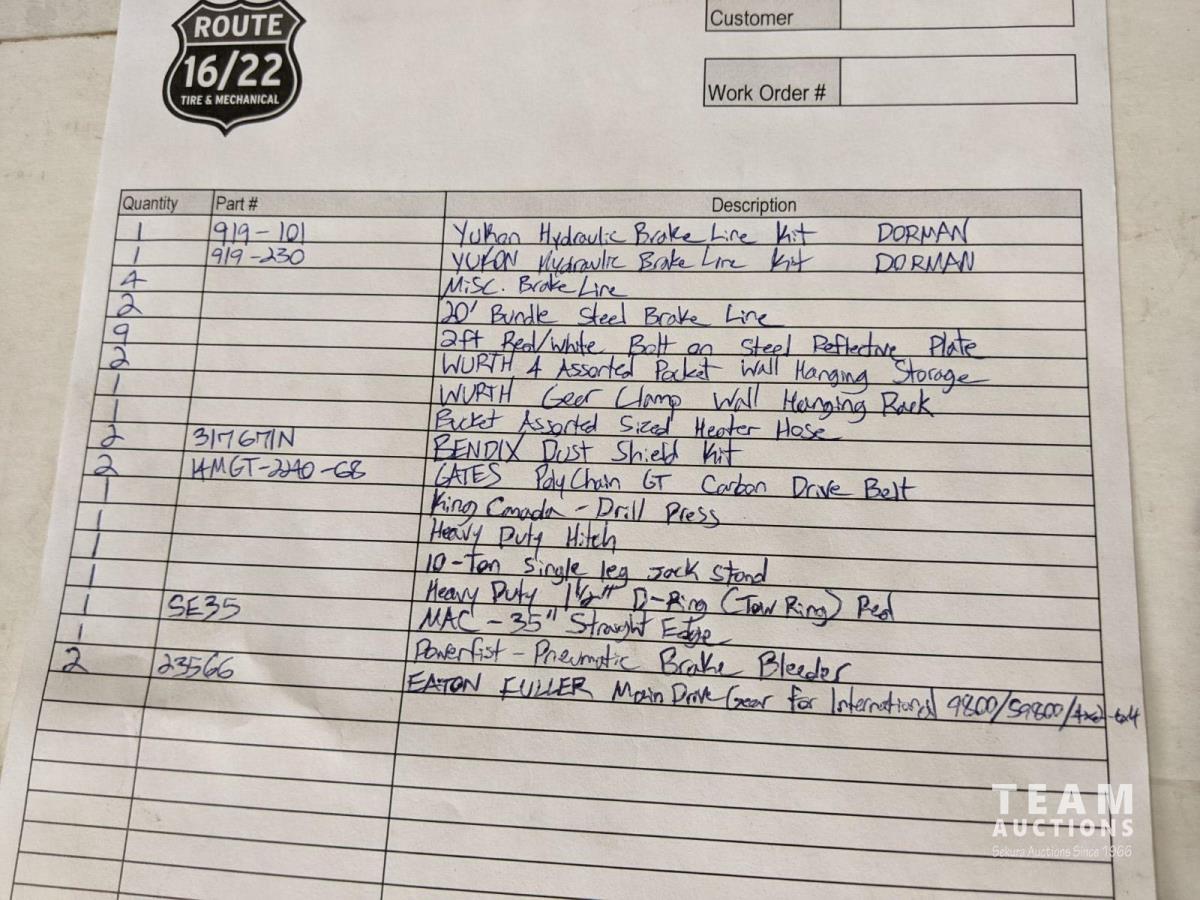 ROUTE
16/22
TIRE & MECHANICAL
Customer
Work Order #
Quantity Part # Description
1 919-101 Yukon Hydraulic Brake Line Kit DORMAN
1 919-230 YUKON Hydraulic Brake Line Kit DORMAN
4 Misc. Brake Line
2 20' Bundle Steel Brake Line
9 2ft Red/White Bolt on Steel Reflective Plate
2 WURTH 4 Assorted Pocket Wall Hanging Storage
1 WURTH Gear Clamp Wall Hanging Rack
1 Bucket Assorted Sized Heater Hose
2 317671N BENDIX Dust Shield Kit
2 14MGT-2240-68 GATES PolyChain GT Carbon Drive Belt
1 King Canada - Drill Press
1 Heavy Duty Hitch
1 10-Ton Single leg Jack Stand
1 Heavy Duty 1 1/2" D-Ring (Tow Ring) Red
1 SE35 MAC - 35" Straight Edge
1 Powerfist - Pneumatic Brake Bleeder
2 23566 EATON FULLER Main Drive Gear for International 9800/S9800/4x2
TEAM
AUCTIONS
Sekura Auctions Since 1966